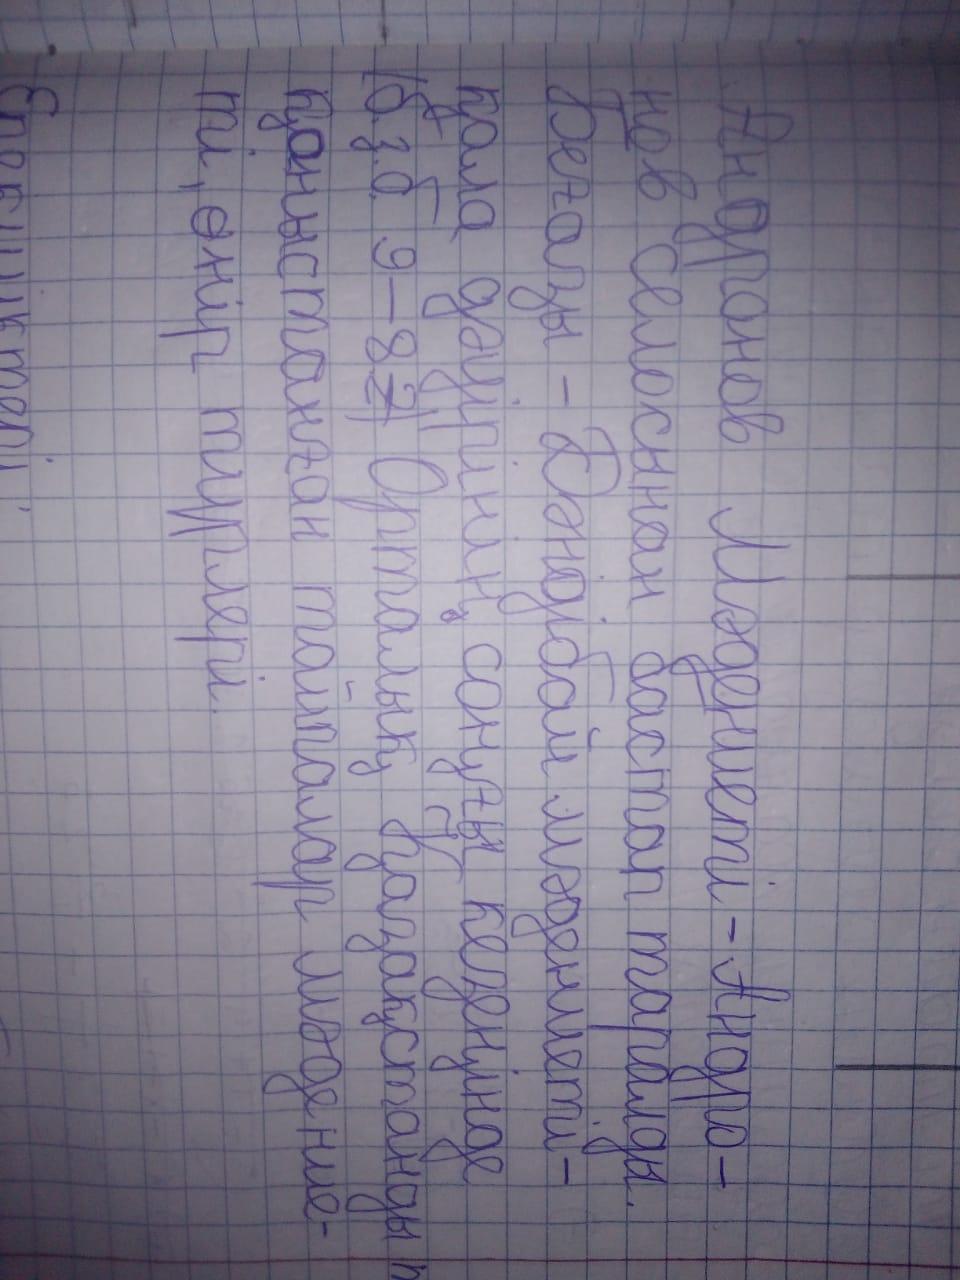 Андронов Мәдениеті - Андро-
нов селосынан бастап таралды.
Беғазы - Дәндібай мәдениеті -
қола дәуірінің соңғы кезеңінде
(б.з.б 9-8ғ) Орталық Қазақстанды
қоныстанған тайпалар мәдение-
ті, өнір түрлері.